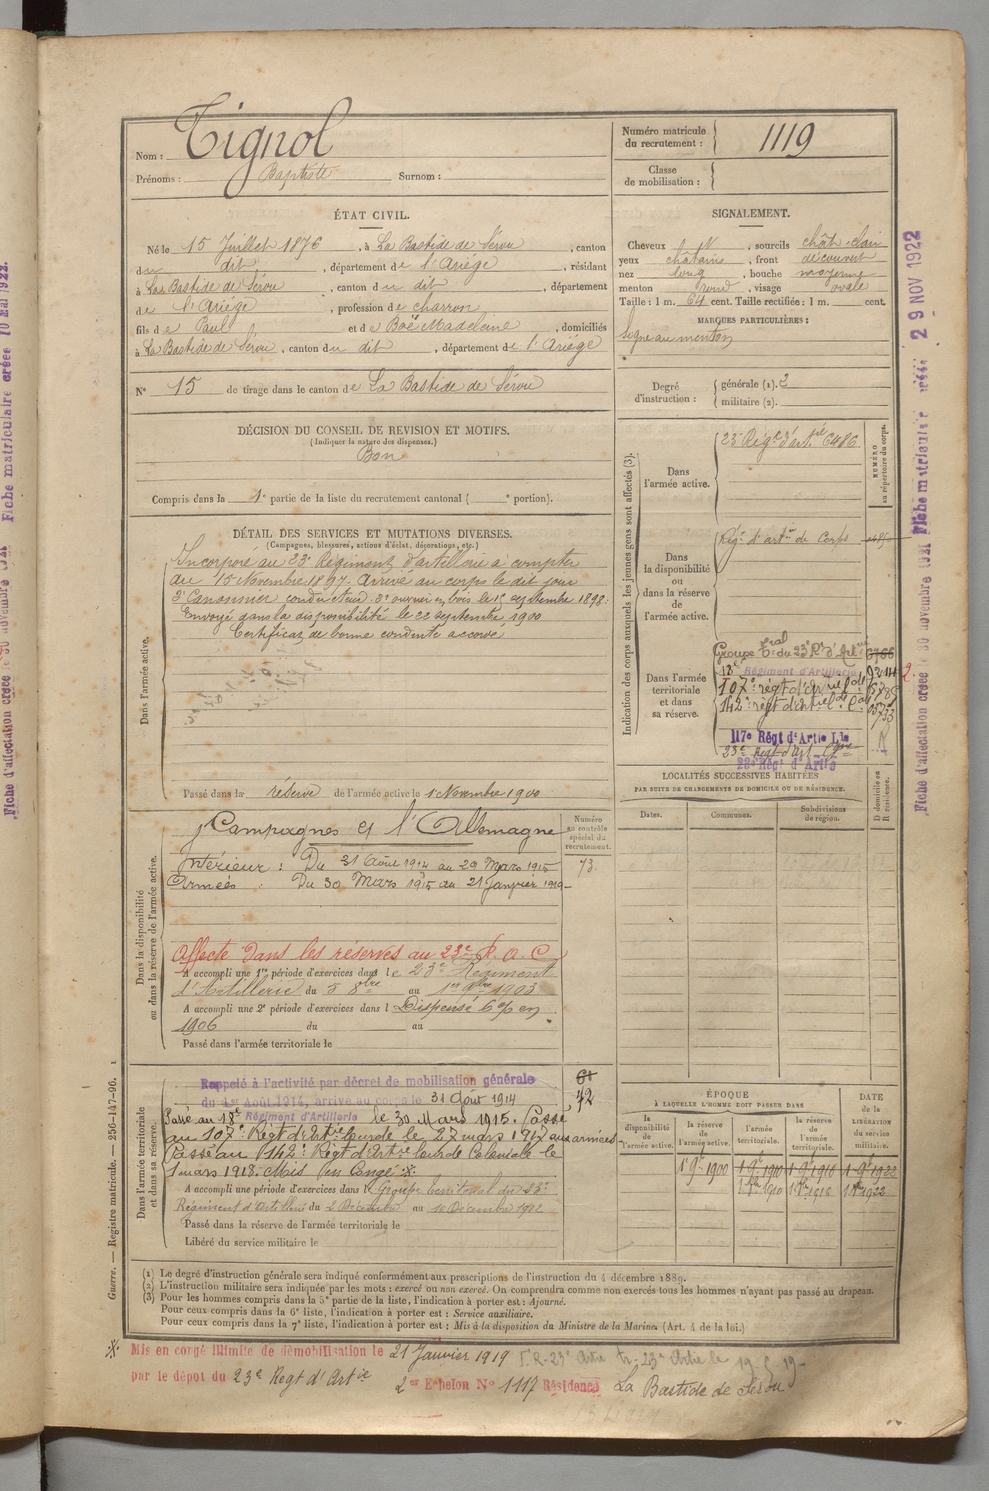 Nom : Tignol
Prénoms : Baptiste Surnom :
Numéro matricule du recrutement : 1119
Classe de mobilisation :
ÉTAT CIVIL.
Né le 15 Juillet 1876, à La Bastide de Sérou, canton
du dit, département de l'Ariège, résidant
à La Bastide de Sérou, canton du dit, département
de l'Ariège, profession de charron
fils de Paul et de Boé Madeleine, domiciliés
à La Bastide de Sérou, canton du dit, département de l'Ariège
N° 15 de tirage dans le canton de La Bastide de Sérou
SIGNALEMENT.
Cheveux , sourcils chât-clair
yeux chatains, front découvert
nez long, bouche moyenne
menton rond, visage ovale
Taille : 1 m. 64 cent. Taille rectifiée : 1 m. cent.
MARQUES PARTICULIÈRES :
Signe au menton
Degré d'instruction : générale (1). 2
militaire (2).
DÉCISION DU CONSEIL DE REVISION ET MOTIFS.
(Indiquer la nature des dispenses.)
Bon
Compris dans la 1e partie de la liste du recrutement cantonal ( e portion).
DÉTAIL DES SERVICES ET MUTATIONS DIVERSES.
(Campagnes, blessures, actions d'éclat, décorations, etc.)
Dans l'armée active.
Incorporé au 23e Régiment d'artillerie à compter
du 15 Novembre 1897. Arrivé au corps le dit jour
2e Canonnier conducteur. ouvrier en bois le septembre 1898.
Envoyé dans la disponibilité le 22 septembre 1900
Certificat de bonne conduite accordé
Passé dans la réserve de l'armée active le 1 Novembre 1900
Indication des corps auxquels les jeunes gens sont affectés (3).
NUMÉRO au répertoire du corps.
Dans l'armée active.
23e Régt d'Artie 6486
Dans la disponibilité ou dans la réserve de l'armée active.
Rég. d'artie de Corps
Dans l'armée territoriale et dans sa réserve.
Groupe Tal du 23e Rt d'Artie
18e Régiment d'Artillerie
107e régt d'artie
142e régt d'artie
117e Régt d'Artie Lde
23e Regt d'Art Cgne
28e Régt d'Artie
LOCALITÉS SUCCESSIVES HABITÉES
PAR SUITE DE CHANGEMENTS DE DOMICILE OU DE RÉSIDENCE.
Dates. Communes. Subdivisions de région. D domicile ou R résidence.
Dans la disponibilité ou dans la réserve de l'armée active.
Numéro au contrôle spécial du recrutement.
Campagnes et l'Allemagne
Intérieur : Du 31 Août 1914 au 29 Mars 1915
73.
Armées : Du 30 Mars 1915 au 21 janvier 1919
Affecté dans les réserves au 23e R.A.C
A accompli une 1re période d'exercices dans le 23e Régiment
d'Artillerie du 5 8bre au 1er 9bre 1903
A accompli une 2e période d'exercices dans l Dispensé en
1906 du au
Passé dans l'armée territoriale le
Dans l'armée territoriale et dans sa réserve.
Rappelé à l'activité par décret de mobilisation générale
du 1er Août 1914, arrivé au corps le 31 Août 1914
61
72
Passé au 18e Régiment d'Artillerie le 30 Mars 1915. Passé
au 107e Régt d'Artie lourde le 27 mars 1917 aux armées
Passé au 142e Régt d'Artie lourde Coloniale le
1 mars 1918. Mis en Congé ※
A accompli une période d'exercices dans le Groupe territorial du 23e
Régiment d'Artillerie du 2 Décembre au 10 Décembre 1912
Passé dans la réserve de l'armée territoriale le
Libéré du service militaire le
ÉPOQUE
À LAQUELLE L'HOMME DOIT PASSER DANS
DATE de la LIBÉRATION du service militaire.
la disponibilité de l'armée active. la réserve de l'armée active. l'armée territoriale. la réserve de l'armée territoriale.
1 9e 1900 1 9e 1910 1 9e 1916 1 9e 1922
1 9bre 1910 1 9bre 1916 1 9bre 1922
(1) Le degré d'instruction générale sera indiqué conformément aux prescriptions de l'instruction du 4 décembre 1889.
(2) L'instruction militaire sera indiquée par les mots : exercé ou non exercé. On comprendra comme non exercés tous les hommes n'ayant pas passé au drapeau.
(3) Pour les hommes compris dans la 5e partie de la liste, l'indication à porter est : Ajourné.
Pour ceux compris dans la 6e liste, l'indication à porter est : Service auxiliaire.
Pour ceux compris dans la 7e liste, l'indication à porter est : Mis à la disposition du Ministre de la Marine. (Art. 4 de la loi.)
※ Mis en congé illimité de démobilisation le 21 Janvier 1919
par le dépôt du 23e Regt d'Artie
2er Echelon N° 1117 Résidence La Bastide de Sérou
Guerre. — Registre matricule. — 256-147-96.
Fiche d'affectation créée le 30 novembre 1921 Fiche matriculaire créée 29 NOV 1922
Fiche d'affectation créée le 30 novembre 1921 Fiche matriculaire créée 10 Mai 1922.